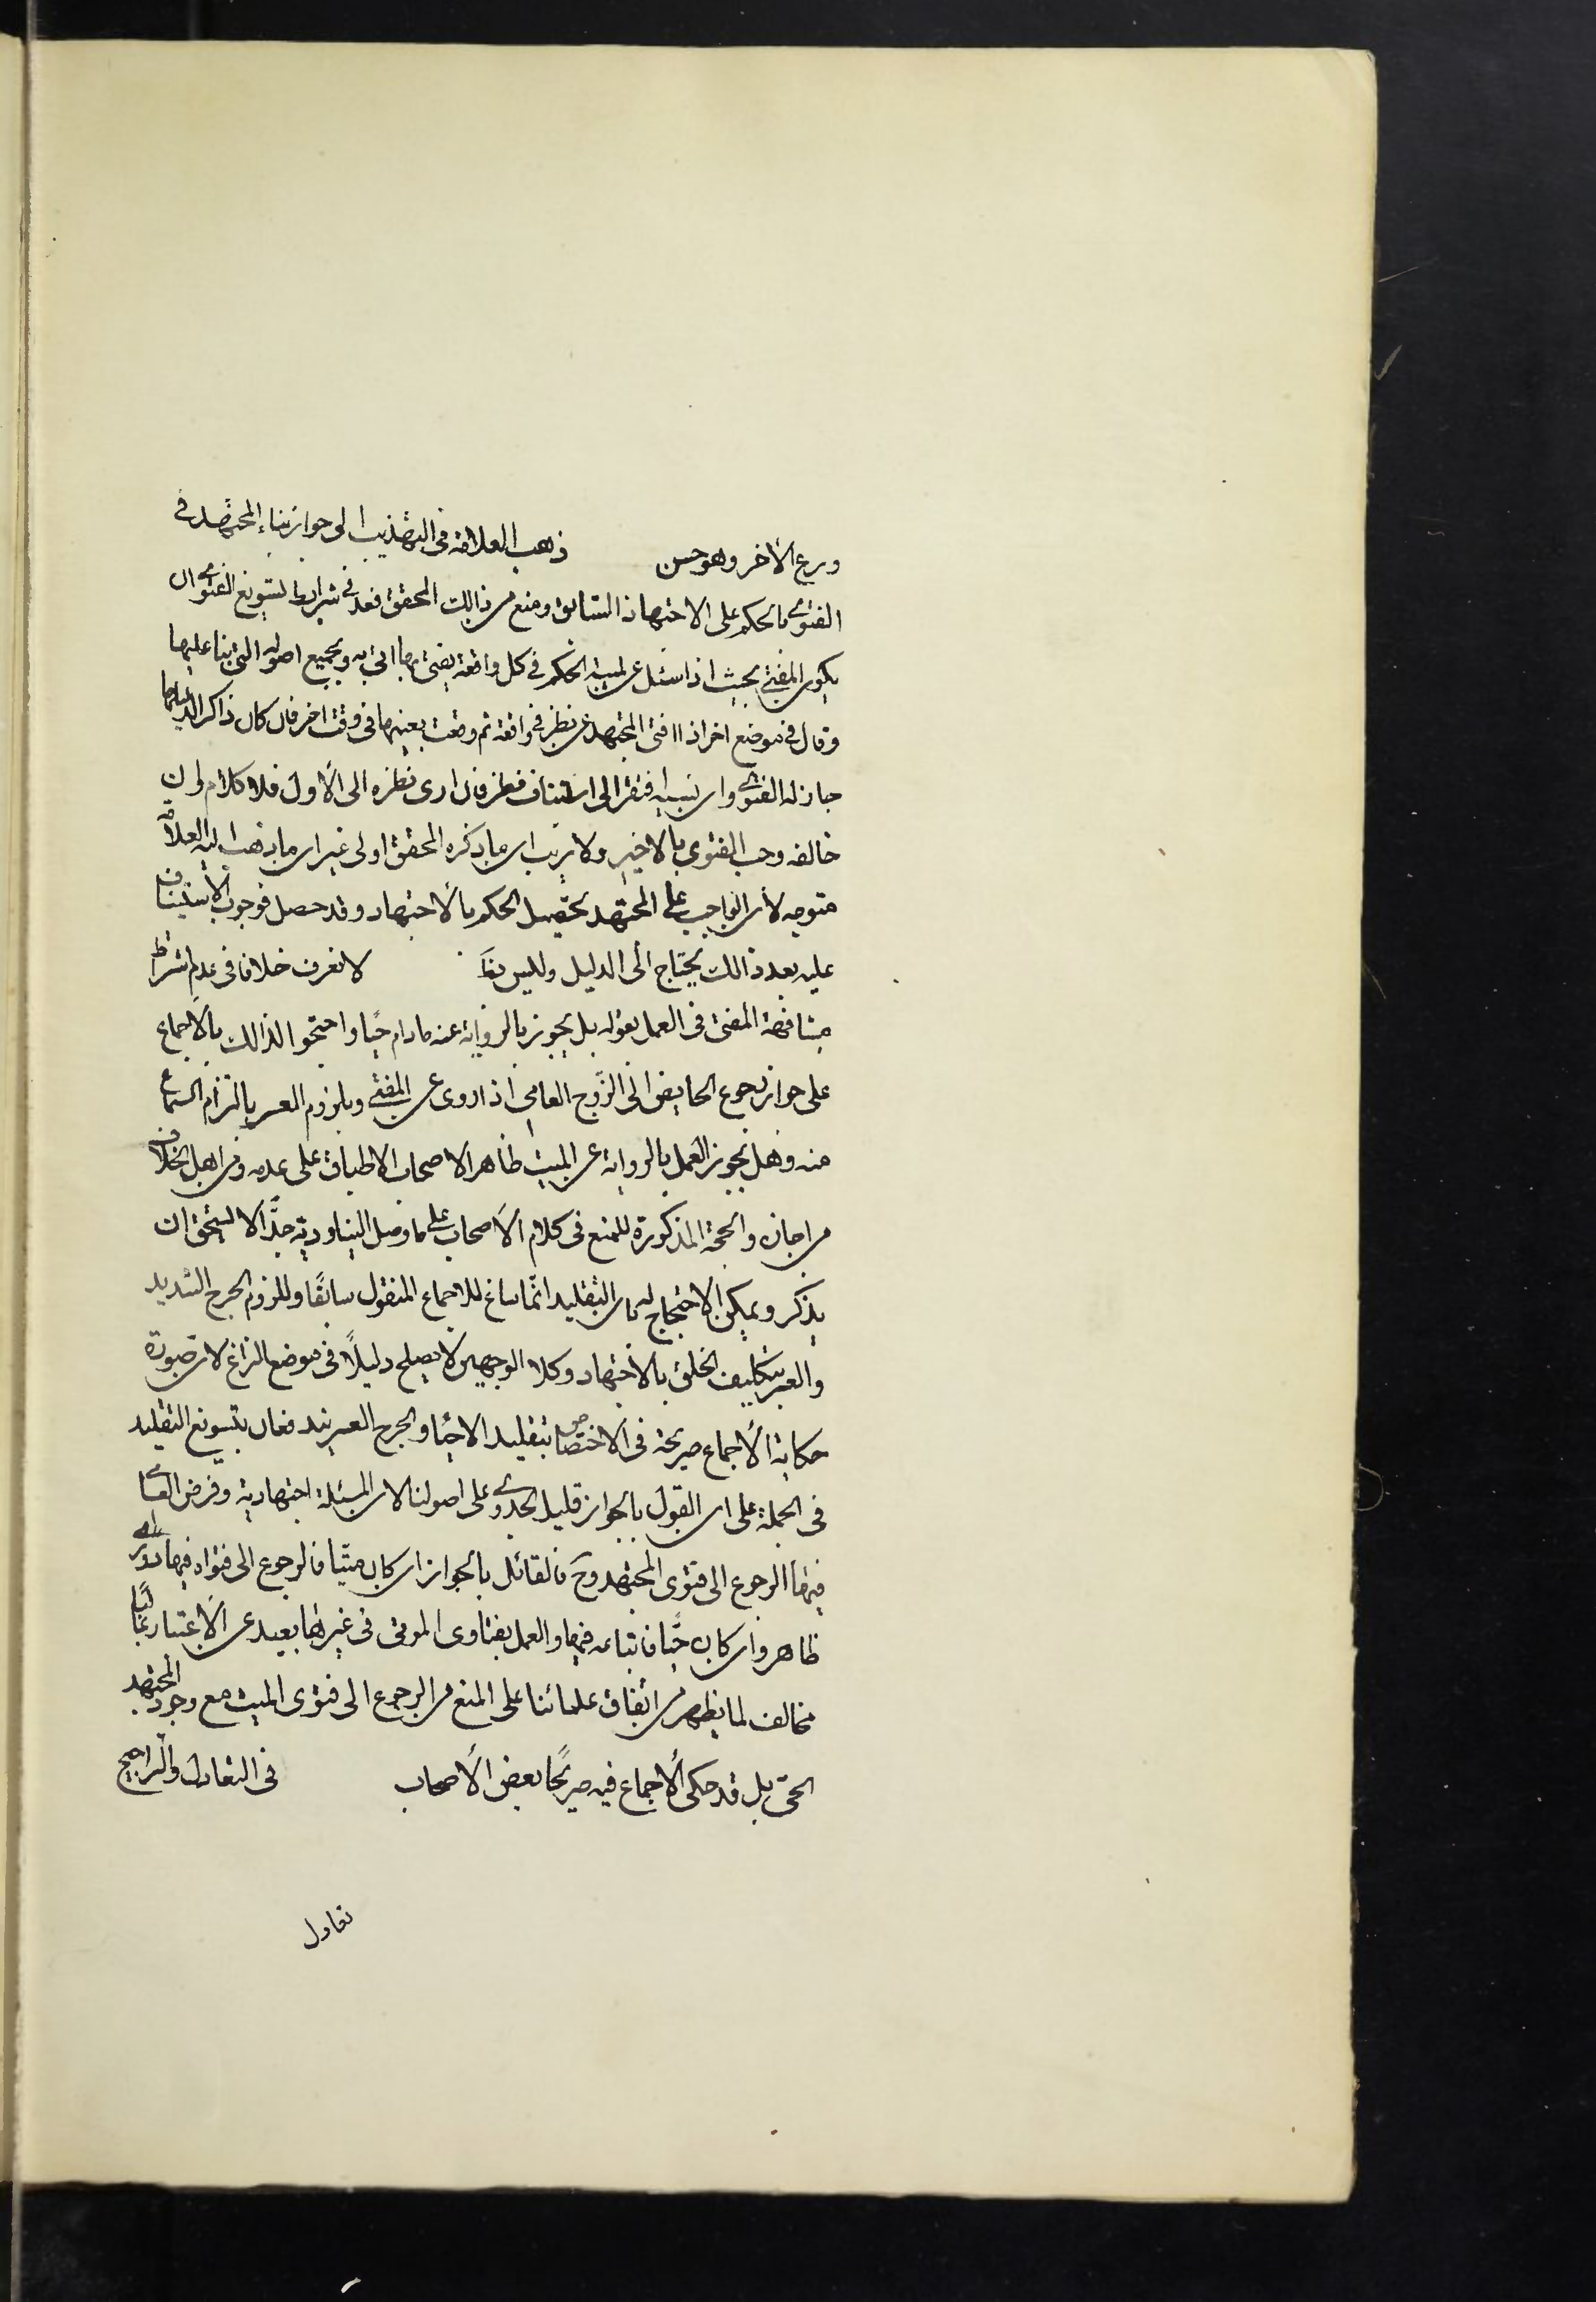 ورع الآخر وهو حسن ذهب العلامة فى التهذيب الى جواز بناء المجتهد فى
الفتوى بالحكم على الاجتهاد السابق ومنع من ذالك المحقق فعد فى شرايط تسويغ الفتوى ان
يكون المفتى بحيث اذا سئل عن لمية الحكم فى كل واقعة يفتى بها اتى به وبجميع اصوله التى بنا عليها
وقال فى موضع اخر اذا افتى المجتهد عن نظر فى واقعة ثم وقعت بعينها فى وقت اخر فان كان ذاكرا لدليلها
جاز له الفتوى وان نسيه افتقر الى استيناف نظر فان ادى نظره الى الاول فلا كلام وان
خالفه وجب الفتوى بالاخير ولا ريب ان ما ذكره المحقق اولى غير ان ما ذهب اليه العلامة
متوجه لان الواجب على المجتهد تحصيل الحكم بالاجتهاد وقد حصل فوجوب الاستيناف
عليه بعد ذالك يحتاج الى الدليل وليس بظَ لا نعرف خلافا فى عدم اشتراط
مشافهة المفتى فى العمل بقوله بل يجوز بالرواية عنه ما دام حيّا واحتجوا لذالك بالاجماع
على جواز رجوع الحايض الى الزّوج العامى اذا روى عن المفتى وبلزوم العسر بالتزام السّماع
منه وهل يجوز العمل بالرواية عن الميت ظاهر الاصحاب الاطباق على عدمه ومن اهل الخلاف
من اجازه والحجة المذكورة للمنع فى كلام الاصحاب على ما وصل الينا ردية جدّا لا يستحق ان
يذكر ويمكن الاحتجاج له بان التقليد انّما ساغ للاجماع المنقول سابقًا وللزوم الحرج الشديد
والعسر بتكليف الخلق بالاجتهاد وكلا الوجهين لا يصلح دليلًا فى موضع النزاع لان صورة
حكاية الاجماع صريحة فى الاختصاص بتقليد الاحياء والحرج العسر يندفعان بتسويغ التقليد
فى الجملة على ان القول بالجواز قليل الجدوى على اصولنا لان المسئلة اجتهادية وفرض العامى
فيها الرجوع الى فتوى المجتهد وحَ فالقائل بالجواز ان كان ميّتا فالرجوع الى فتواه فيها دور
ظاهر وان كان حيّا فاتباعه فيها والعمل بفتاوى الموتى فى غيرها بعيد عن الاعتبار غالبًا
مخالف لما يظهر من اتفاق علمائنا على المنع من الرجوع الى فتوى الميت مع وجود المجتهد
الحىّ بل قد حكى الاجماع فيه صريحًا بعض الاصحاب فى التعادل والتراجيح
تعادل